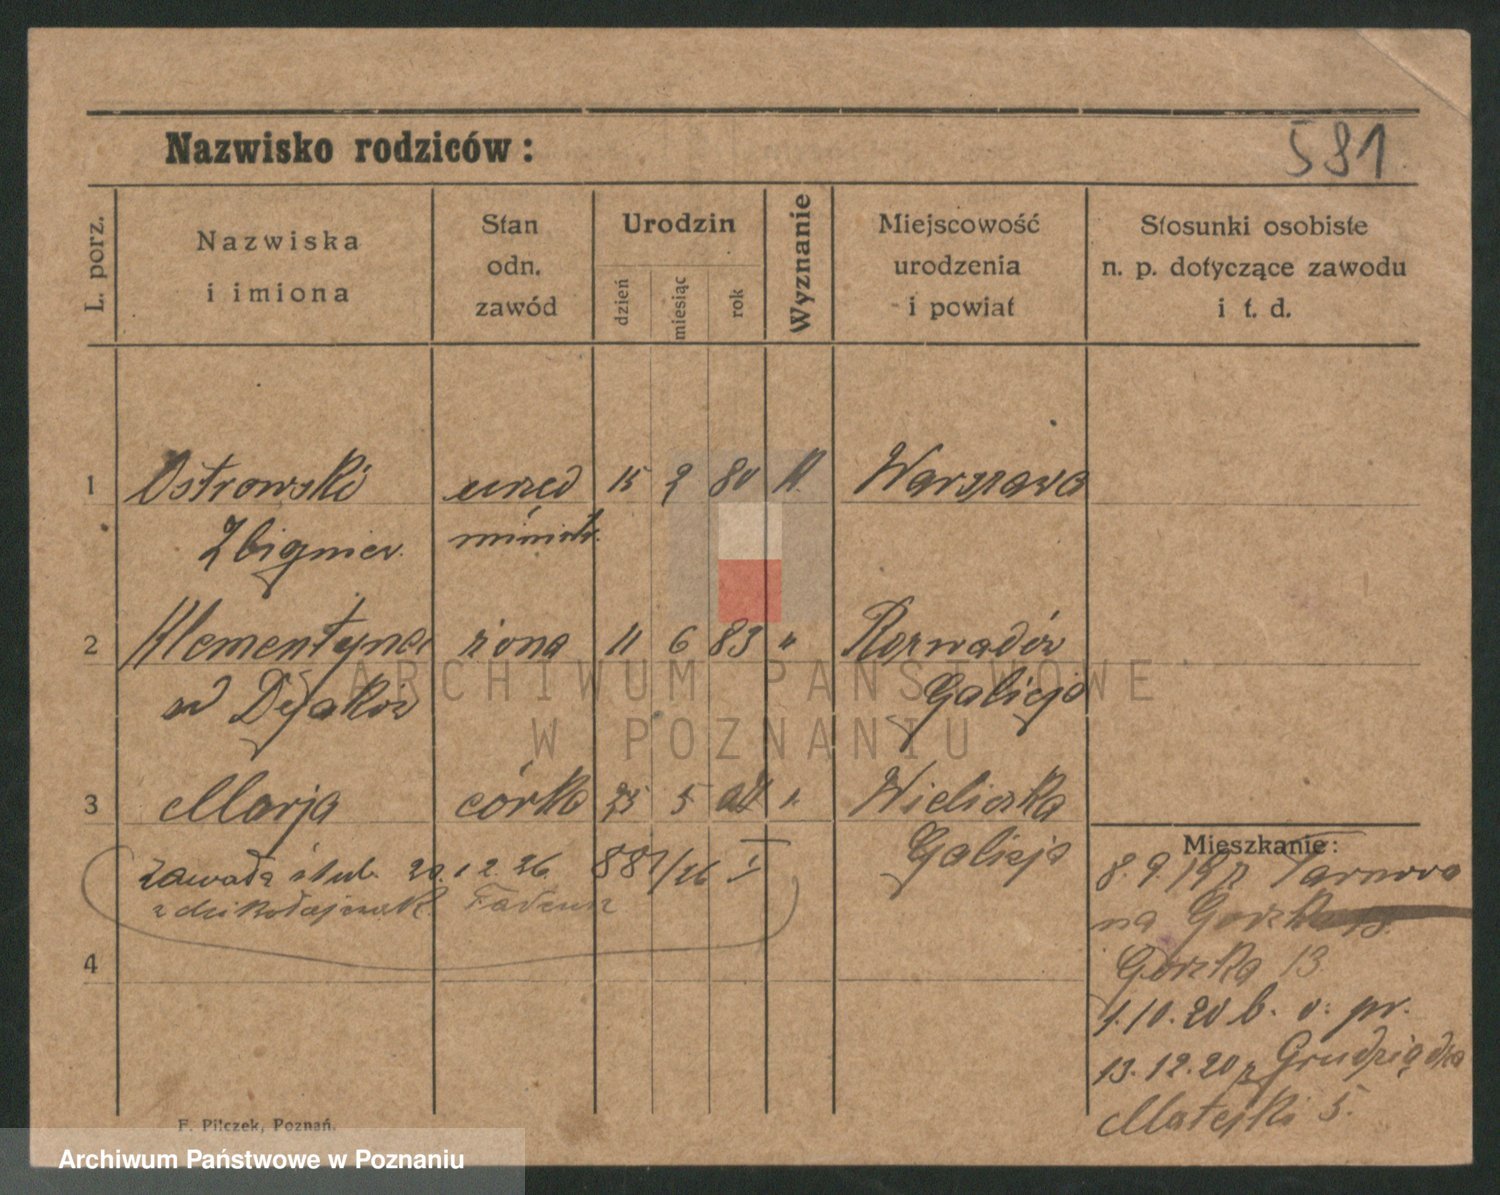 Nazwisko rodziców:
591
L. porz.
Nazwiska
i imiona
Stan
odn.
zawód
Urodzin
dzień
miesiąc
rok
Wyznanie
Miejscowość
urodzenia
i powiat
Stosunki osobiste
n. p. dotyczące zawodu
i t. d.
1 Ostrowski urzęd 15 2 80 k. Warszawa
Zbigniew minist.
2 Klementyna żona 11 6 83 " Rozwadów
Galicja
3 Marja córka 25 5 " Wieliczka
Galicja
Mieszkanie:
20.12.26 887/26 I
Tadeusz
4
8.9.19 z Tarnowa
na
Górska 13
1.10.20 b. o. pr.
13.12.20 z Grudziądza
Matejki 5.
F. Pilczek, Poznań.
ARCHIWUM PAŃSTWOWE
W POZNANIU
Archiwum Państwowe w Poznaniu